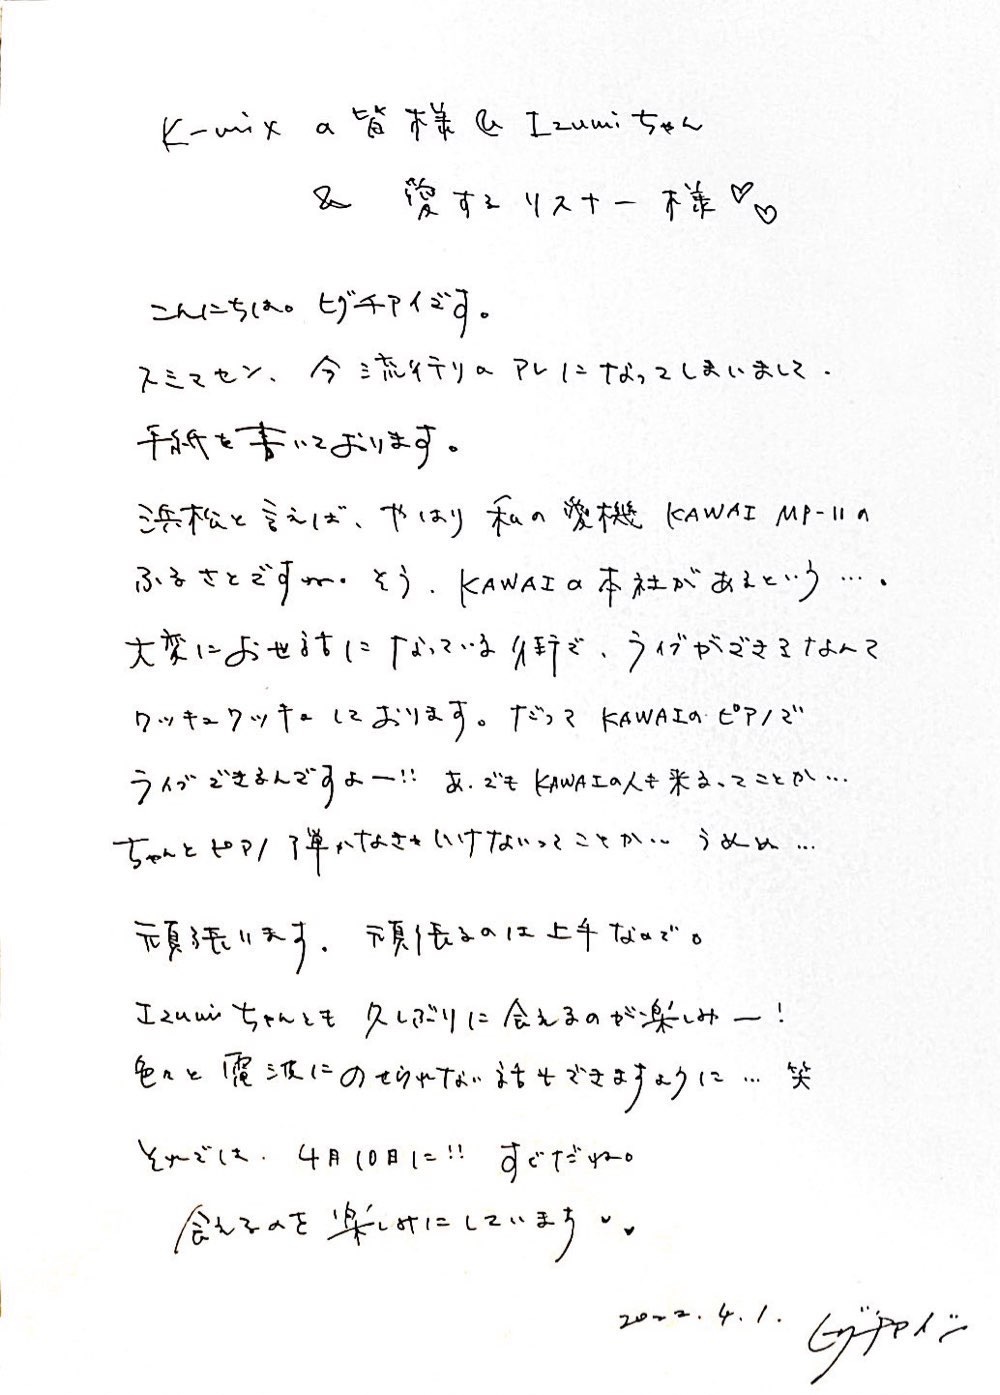 K-mixの皆様&Izumiちゃん
& 愛するリスナー様♡♡
こんにちは。ヒグチアイです。
スミマセン、今流行りのアレになってしまいまして、
手紙を書いております。
浜松と言えば、やはり私の愛機 KAWAI MP-11の
ふるさとですね。そう、KAWAIの本社があるという…。
大変にお世話になっている街で、ライブができるなんて
ワッキュワッキュしております。だって KAWAIのピアノで
ライブできるんですよー!! あ、でもKAWAIの人も来るってことか…
ちゃんとピアノ弾かなきゃいけないってことか… うぬぬ…
頑張ります。頑張るのは上手なので。
Izumiちゃんとも久しぶりに会えるのが楽しみー!
色々と電波にのせられない話もできますように… 笑
それでは、4月10日に!! すぐだね。
会えるのを楽しみにしています♥♥
2022.4.1. ヒグチアイ